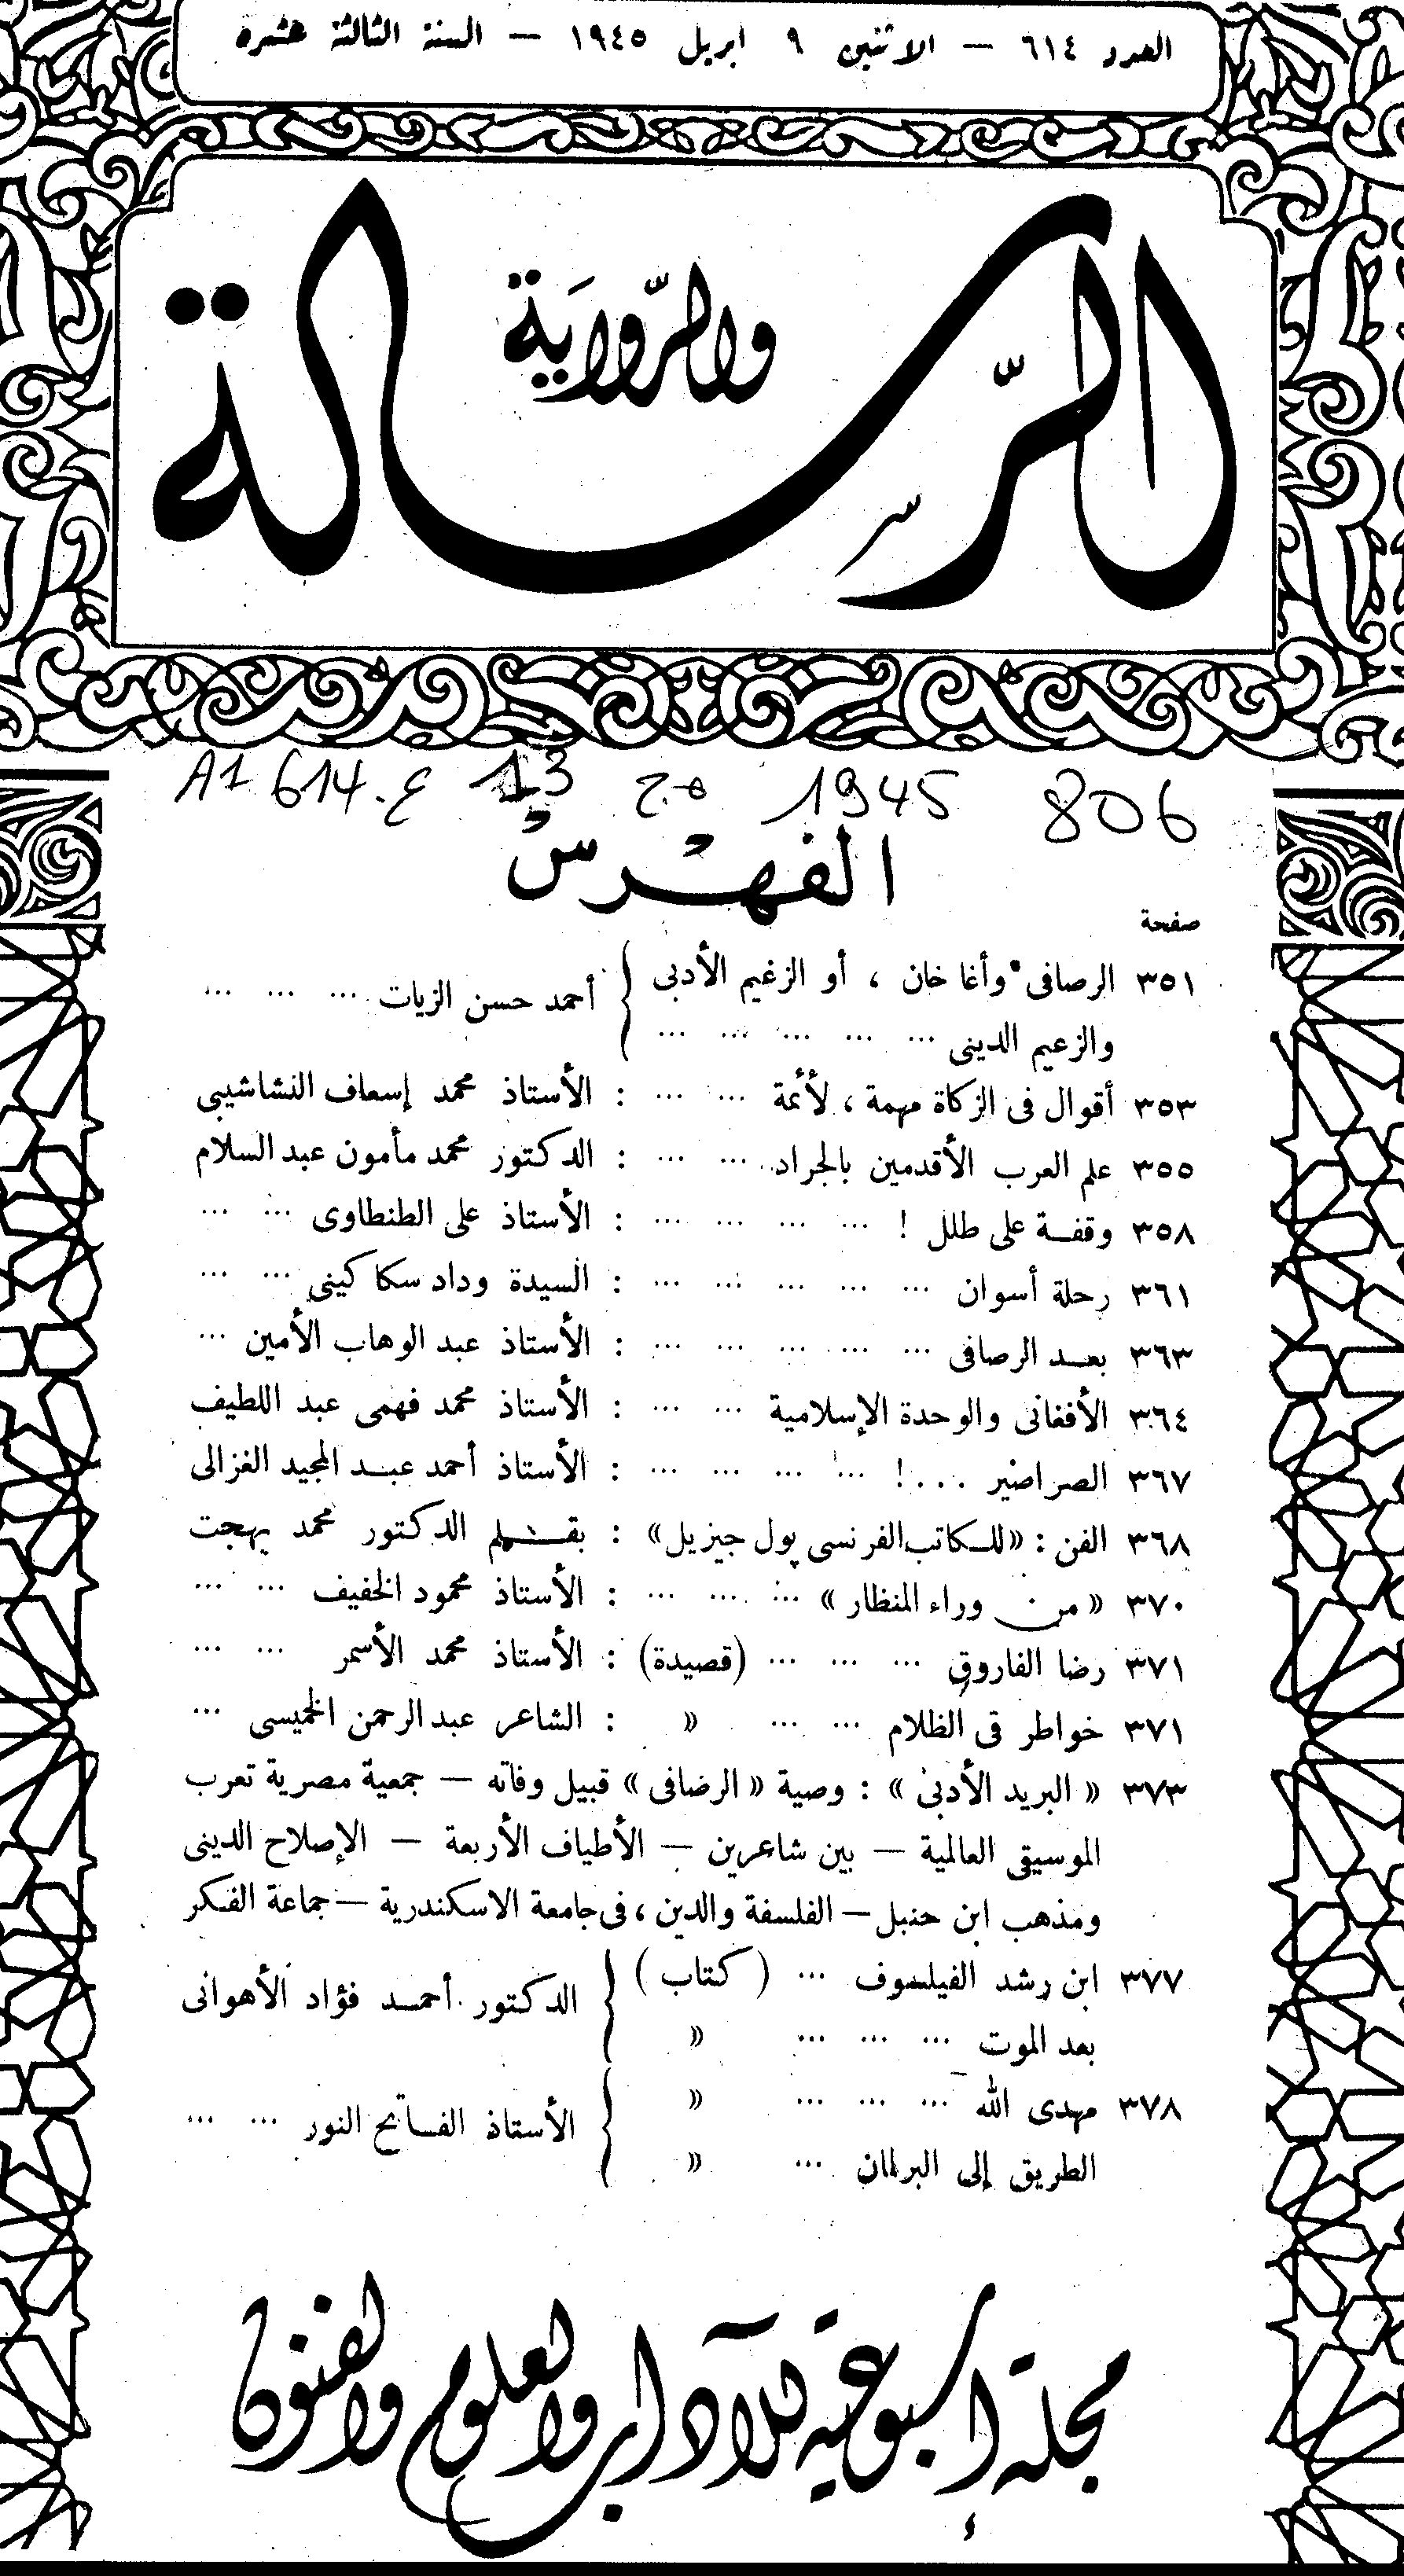 العدد ٦١٤ — الاثنين ٩ ابريل ١٩٤٥ — السنة الثالثة عشرة
الرسالة
والرواية
A1 614.ع 13 ج.ه 1945 806
الفهرس
صفحة
٣٥١ الرصافى وأغا خان ، أو الزعيم الأدبى
والزعيم الدينى ... ... ... ... ... } أحمد حسن الزيات ... ... ...
٣٥٣ أقوال فى الزكاة مهمة ، لأئمة ... ... : الأستاذ محمد إسعاف النشاشيبى
٣٥٥ علم العرب الأقدمين بالجراد ... ... : الدكتور محمد مأمون عبد السلام
٣٥٨ وقفة على طلل ! ... ... ... ... : الأستاذ على الطنطاوى ... ...
٣٦١ رحلة أسوان ... ... ... ... ... : السيدة وداد سكاكينى ... ...
٣٦٣ بعد الرصافى ... ... ... ... ... : الأستاذ عبد الوهاب الأمين ...
٣٦٤ الأفغانى والوحدة الإسلامية ... ... : الأستاذ محمد فهمى عبد اللطيف
٣٦٧ الصراصير ...! ... ... ... ... : الأستاذ أحمد عبد المجيد الغزالى
٣٦٨ الفن : «للكاتب الفرنسى پول جيزيل» : بقلم الدكتور محمد بهجت
٣٧٠ « من وراء المنظار » ... ... ... : الأستاذ محمود الخفيف ... ...
٣٧١ رضا الفاروق ... ... ... (قصيدة) : الأستاذ محمد الأسمر ... ...
٣٧١ خواطر فى الظلام ... ... » : الشاعر عبد الرحمن الخميسى ...
٣٧٣ « البريد الأدبى » : وصية « الرضافى » قبيل وفاته — جمعية مصرية تعرب
الموسيقى العالمية — بين شاعرين — الأطياف الأربعة — الإصلاح الدينى
ومذهب ابن حنبل — الفلسفة والدين ، فى جامعة الاسكندرية — جماعة الفكر
٣٧٧ ابن رشد الفيلسوف ... ( كتاب ) } الدكتور أحمد فؤاد الأهوانى
بعد الموت ... ... ... »
٣٧٨ مهدى الله ... ... ... » } الأستاذ الفاتح النور ... ...
الطريق إلى البرلمان ... »
مجلة إسبوعية للآداب والعلوم والفنون